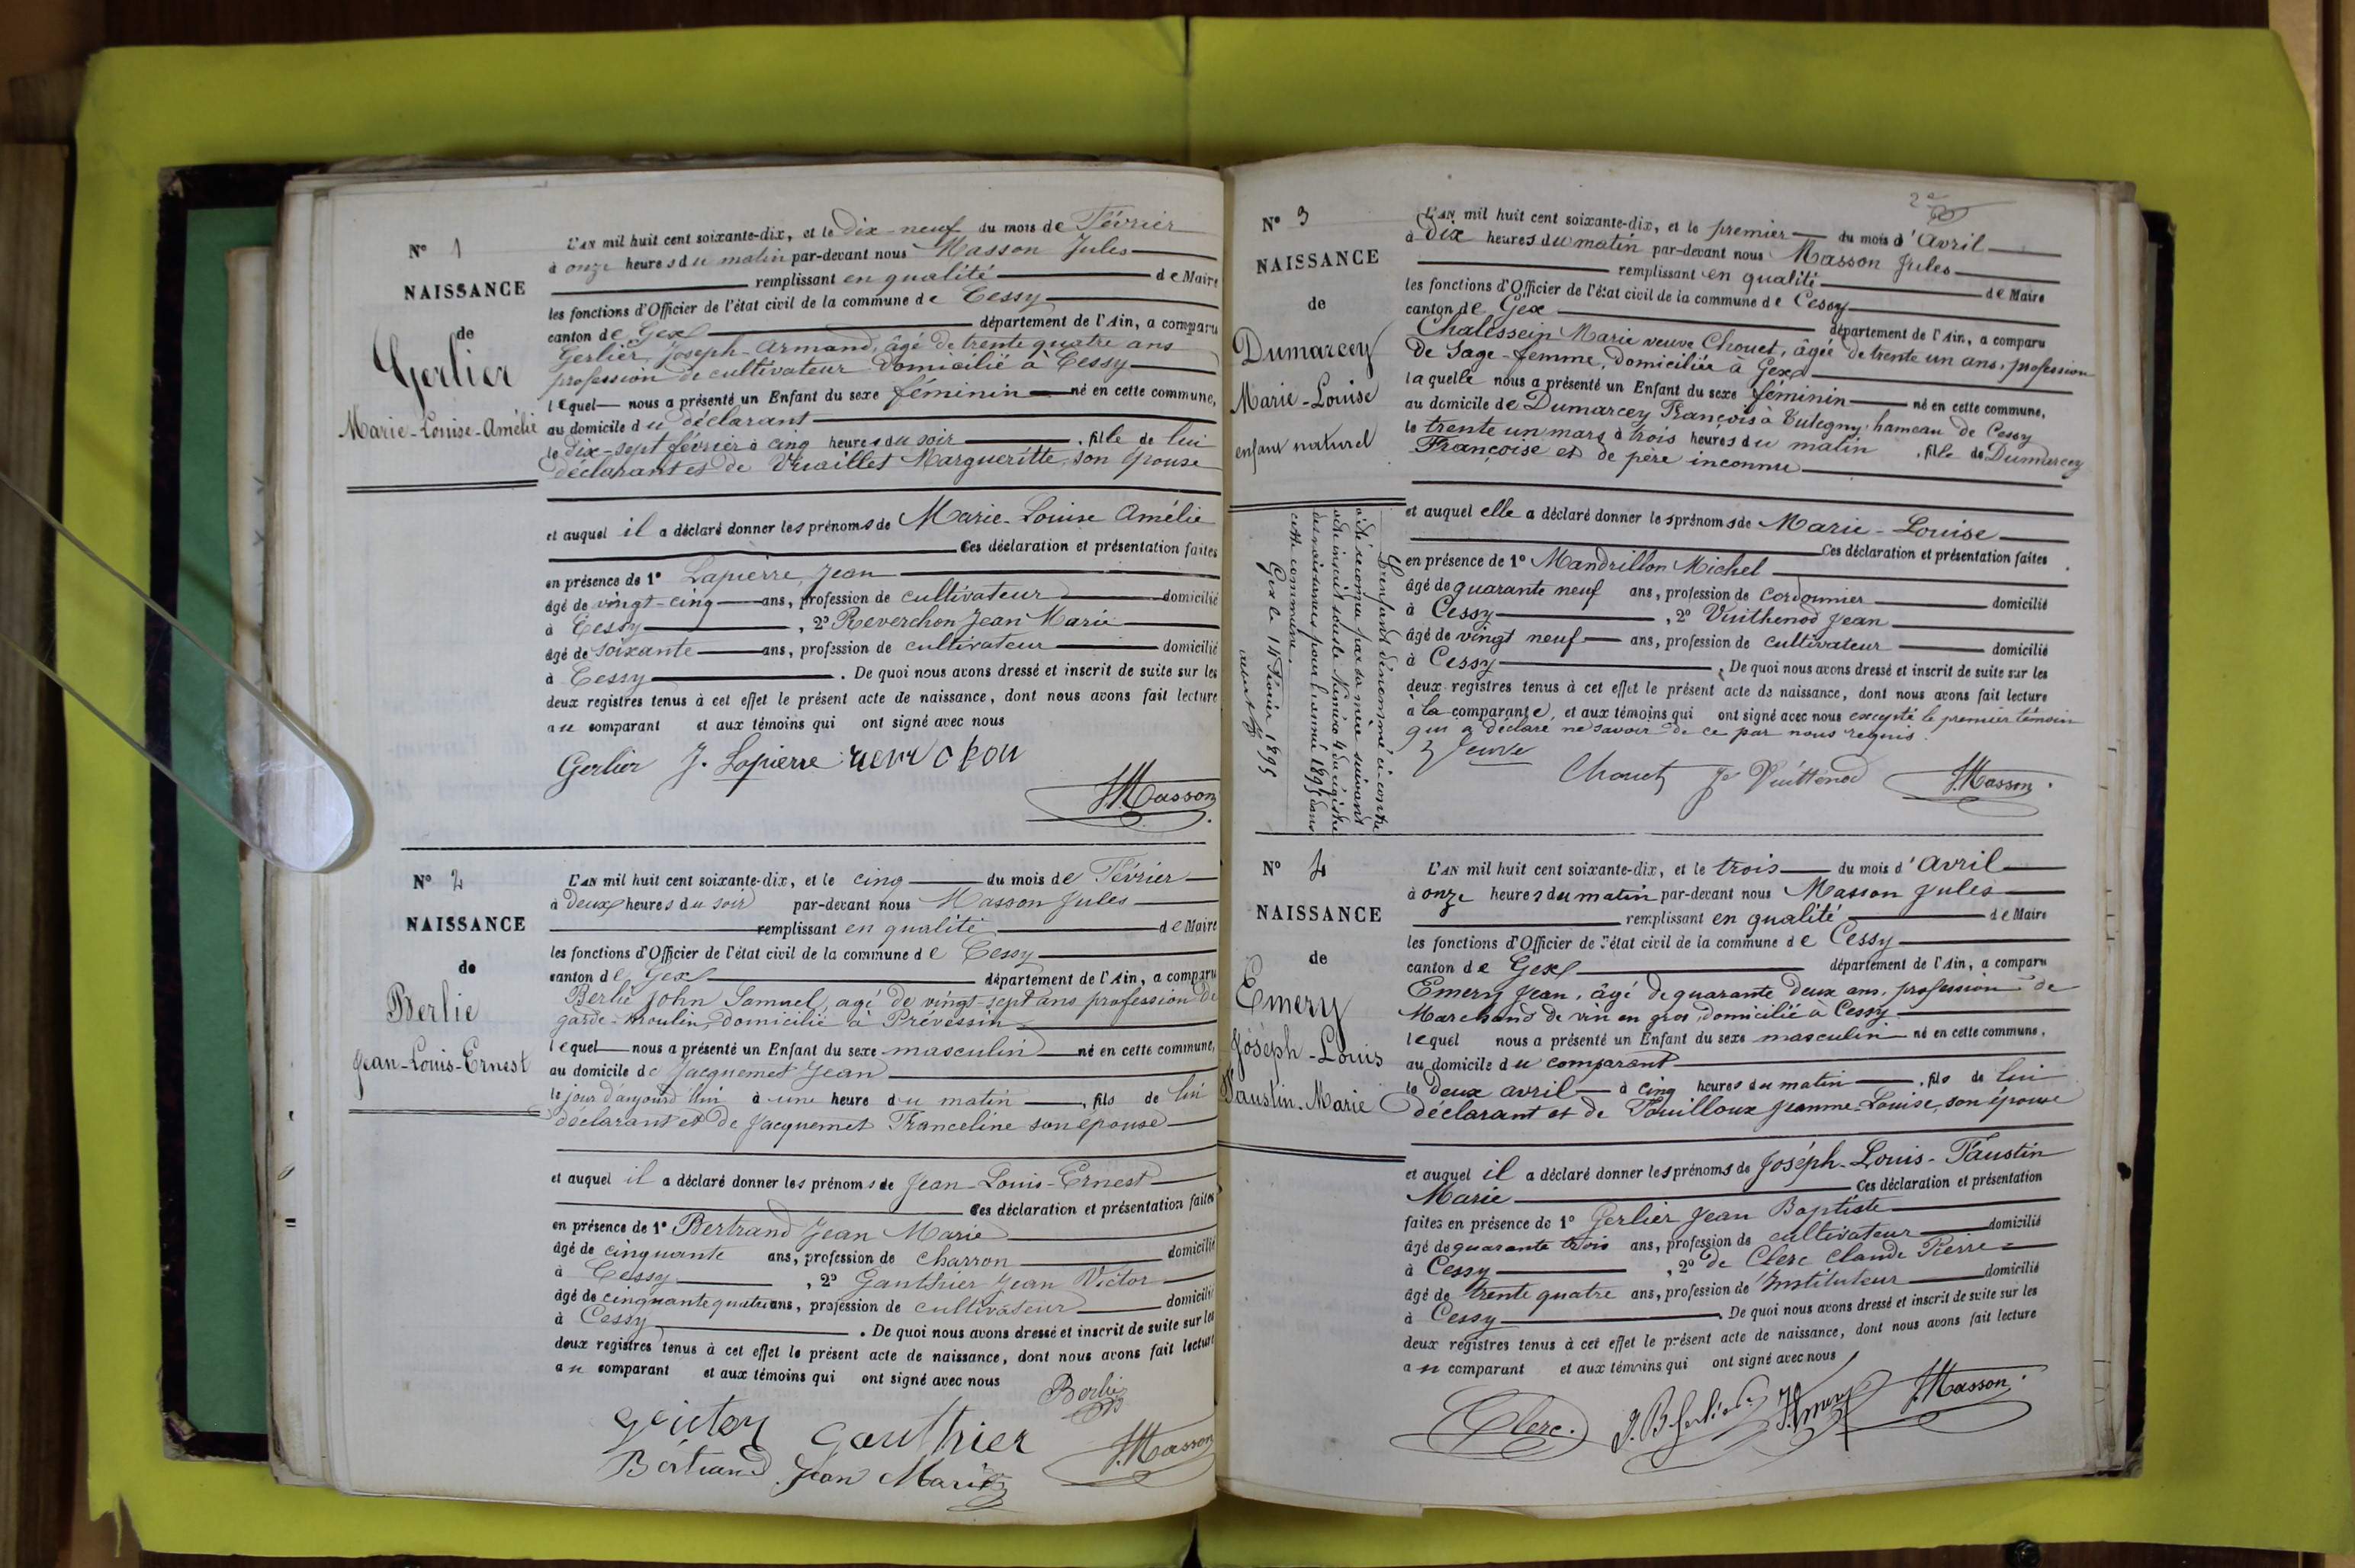 N° 1
NAISSANCE
de
Gerlier
Marie-Louise-Amélie
L'AN mil huit cent soixante-dix, et le dix-neuf du mois de Février
à onze heures du matin par-devant nous Masson Jules
remplissant en qualité de Maire
les fonctions d'Officier de l'état civil de la commune de Cessy
canton de Gex département de l'Ain, a comparu
Gerlier, Joseph-Armand, âgé de trente quatre ans
profession de cultivateur domicilié à Cessy
lequel nous a présenté un Enfant du sexe féminin né en cette commune,
au domicile du déclarant
le dix-sept février à cinq heures du soir, fille de lui
déclarant et de Vuaillet Margueritte, son épouse
et auquel il a déclaré donner les prénoms de Marie-Louise Amélie
Ces déclaration et présentation faites
en présence de 1° Lapierre, Jean
âgé de vingt-cinq ans, profession de cultivateur domicilié
à Cessy, 2° Reverchon Jean Marie
âgé de soixante ans, profession de cultivateur domicilié
à Cessy. De quoi nous avons dressé et inscrit de suite sur les
deux registres tenus à cet effet le présent acte de naissance, dont nous avons fait lecture
au comparant et aux témoins qui ont signé avec nous
Gerlier J. Lapierre reverchon
J. Masson
N° 2
NAISSANCE
de
Berlie
Jean-Louis-Ernest
L'AN mil huit cent soixante-dix, et le cinq du mois de Février
à deux heures du soir par-devant nous Masson Jules
remplissant en qualité de Maire
les fonctions d'Officier de l'état civil de la commune de Cessy
canton de Gex département de l'Ain, a comparu
Berlie John Samuel, agé de vingt-sept ans profession de
garde-moulin, domicilié à Prévessin
lequel nous a présenté un Enfant du sexe masculin né en cette commune,
au domicile de Jacquemet Jean
le jour d'aujourd'hui à une heure du matin, fils de lui
déclarant et de Jacquemet Franceline son épouse
et auquel il a déclaré donner les prénoms de Jean-Louis-Ernest
Ces déclaration et présentation faites
en présence de 1° Bertrand Jean Marie
âgé de cinquante ans, profession de charron domicilié
à Cessy, 2° Gauthier Jean Victor
âgé de cinquante quatre ans, profession de cultivateur domicilié
à Cessy. De quoi nous avons dressé et inscrit de suite sur les
deux registres tenus à cet effet le présent acte de naissance, dont nous avons fait lecture
au comparant et aux témoins qui ont signé avec nous
Berlie
Gauthier
Bertrand Jean Marie
J. Masson
N° 3
NAISSANCE
de
Dumarcey
Marie-Louise
enfant naturel
L'enfant dénommé ci-contre
a été reconnu par sa mère suivant
acte inscrit sous le Numéro 4 du registre
des naissances pour l'année 1895 dans
cette commune.
Gex le 14 Février 1895
L'AN mil huit cent soixante-dix, et le premier du mois d'Avril
à Dix heures du matin par-devant nous Masson Jules
remplissant en qualité de Maire
les fonctions d'Officier de l'état civil de la commune de Cessy
canton de Gex département de l'Ain, a comparu
Chalessein Marie veuve Chouet, âgée de trente un ans, profession
de Sage-femme, domiciliée à Gex
laquelle nous a présenté un Enfant du sexe féminin né en cette commune,
au domicile de Dumarcey François à Tutegny hameau de Cessy
le trente un mars à trois heures du matin, fille de Dumarcey
Françoise et de père inconnu
et auquel elle a déclaré donner les prénoms de Marie-Louise
Ces déclaration et présentation faites
en présence de 1° Mandrillon Michel
âgé de quarante neuf ans, profession de cordonnier domicilié
à Cessy, 2° Vuithenod Jean
âgé de vingt neuf ans, profession de cultivateur domicilié
à Cessy. De quoi nous avons dressé et inscrit de suite sur les
deux registres tenus à cet effet le présent acte de naissance, dont nous avons fait lecture
à la comparante, et aux témoins qui ont signé avec nous excepté le premier témoin
qui a déclaré ne savoir de ce par nous requis.
Veuve
Chouet Jn Vuittenod J. Masson
N° 4
NAISSANCE
de
Emery
Joséph-Louis
Faustin-Marie
L'AN mil huit cent soixante-dix, et le trois du mois d'avril
à onze heures du matin par-devant nous Masson Jules
remplissant en qualité de Maire
les fonctions d'Officier de l'état civil de la commune de Cessy
canton de Gex département de l'Ain, a comparu
Emery Jean, âgé de quarante deux ans, profession de
Marchand de vin en gros, domicilié à Cessy
lequel nous a présenté un Enfant du sexe masculin né en cette commune,
au domicile du comparant
le deux avril à cinq heures du matin, fils de lui
déclarant et de Pouilloux Jeanne-Louise, son épouse
et auquel il a déclaré donner les prénoms de Joséph-Louis-Faustin
Marie Ces déclaration et présentation
faites en présence de 1° Gerlier Jean Baptiste
âgé de quarante trois ans, profession de cultivateur domicilié
à Cessy, 2° de Clerc Claude Pierre
âgé de trente quatre ans, profession de Instituteur domicilié
à Cessy. De quoi nous avons dressé et inscrit de suite sur les
deux registres tenus à cet effet le présent acte de naissance, dont nous avons fait lecture
au comparant et aux témoins qui ont signé avec nous
Clerc. J. B. Gerlier J. Emery J. Masson